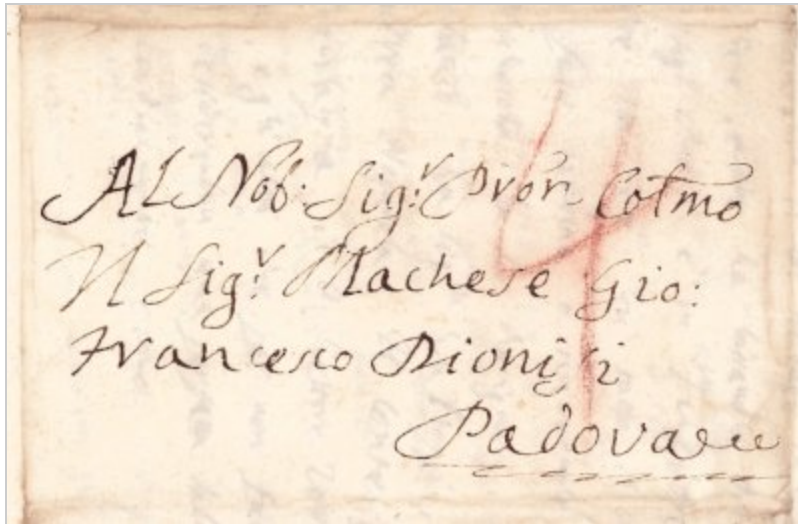 Al Nob: Sig:r Pron Colmo
Il Sig:r Machese Gio:
Francesco Dionisi
Padova
4